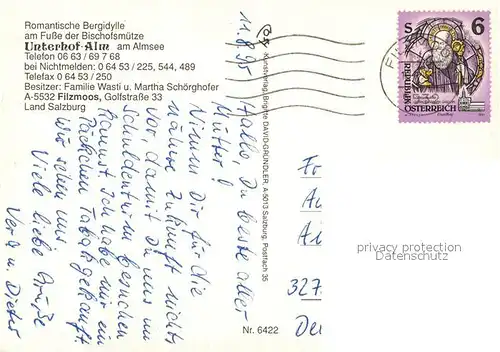 Romantische Bergidylle
am Fuße der Bischofsmütze
Unterhof-Alm am Almsee
Telefon 06 63 / 69 7 68
bei Nichtmelden: 0 64 53 / 225, 544, 489
Telefax 0 64 53 / 250
Besitzer: Familie Wasti u. Martha Schörghofer
A-5532 Filzmoos, Golfstraße 33
Land Salzburg
11.8.95
Hallo, Du beste aller
Mütter!
Nimm Dir für die
nähere Zukunft nichts
vor, damit Du uns im
Schuldenturm besuchen
kannst. Ich habe mir ein
Päckchen Tabak gekauft.
Wir sehen uns
Viele liebe Grüße
Vera u. Dieter
Kunstverlag Brigitte DAVID-GRÜNDLER, A-5013 Salzburg, Postfach 35
Nr. 6422
S 6
REPUBLIK
ÖSTERREICH
Fr
A
327
privacy protection
Datenschutz